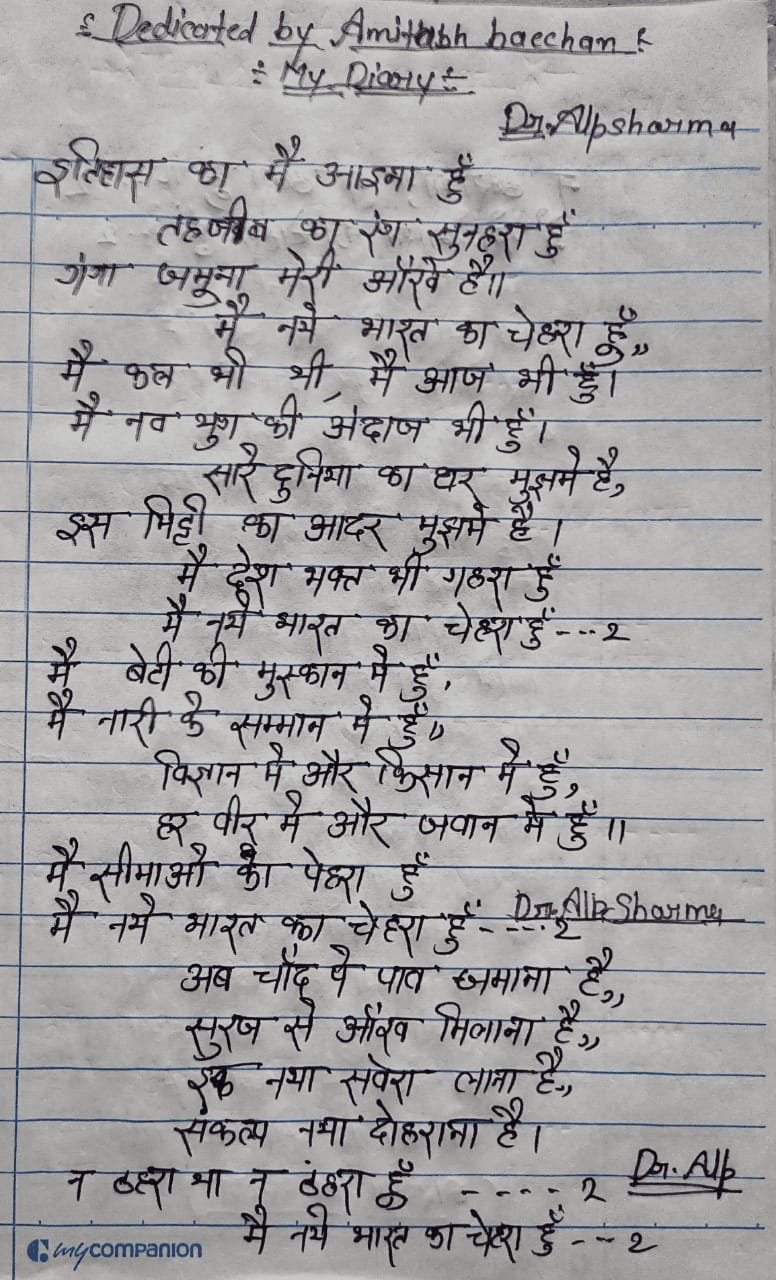 : Dedicated by Amitabh bacchan :
÷ My Diary ÷
Dr. Alpsharma
इतिहास का मै आइना हूँ
तहजीब का रंग सुनहरा हूँ
गंगा जमूना मेरी आँखे है॥
मै नये भारत का चेहरा हूँ,,
मै कल भी थी, मै आज भी हूँ।
मै नव युग की अंदाज भी हूँ।
सारे दुनिया का घर मुझमे है,
इस मिट्टी का आदर मुझमे है।
मै देश भक्त भी गहरा हूँ
मै नये भारत का चेहरा हूँ --- 2
मै बेटी की मुस्कान मे हूँ,
मै नारी के सम्मान मे हूँ,,
विज्ञान मे और किसान मे हूँ,
हर वीर मे और जवान मे हूँ ॥
मै सीमाओ का पेहरा हूँ
मै नये भारत का चेहरा हूँ - --- 2 Dr. Alp Sharma
अब चाँद पे पाव जमाना है,,
सुरज से आँख मिलाना है,,
इक नया सवेरा लाना है,,
संकल्प नया दोहराना है।
न ठहरा था न ठहरा हूँ - - - - 2 Dr. Alp
मै नये भारत का चेहरा हूँ --- 2
mycompanion